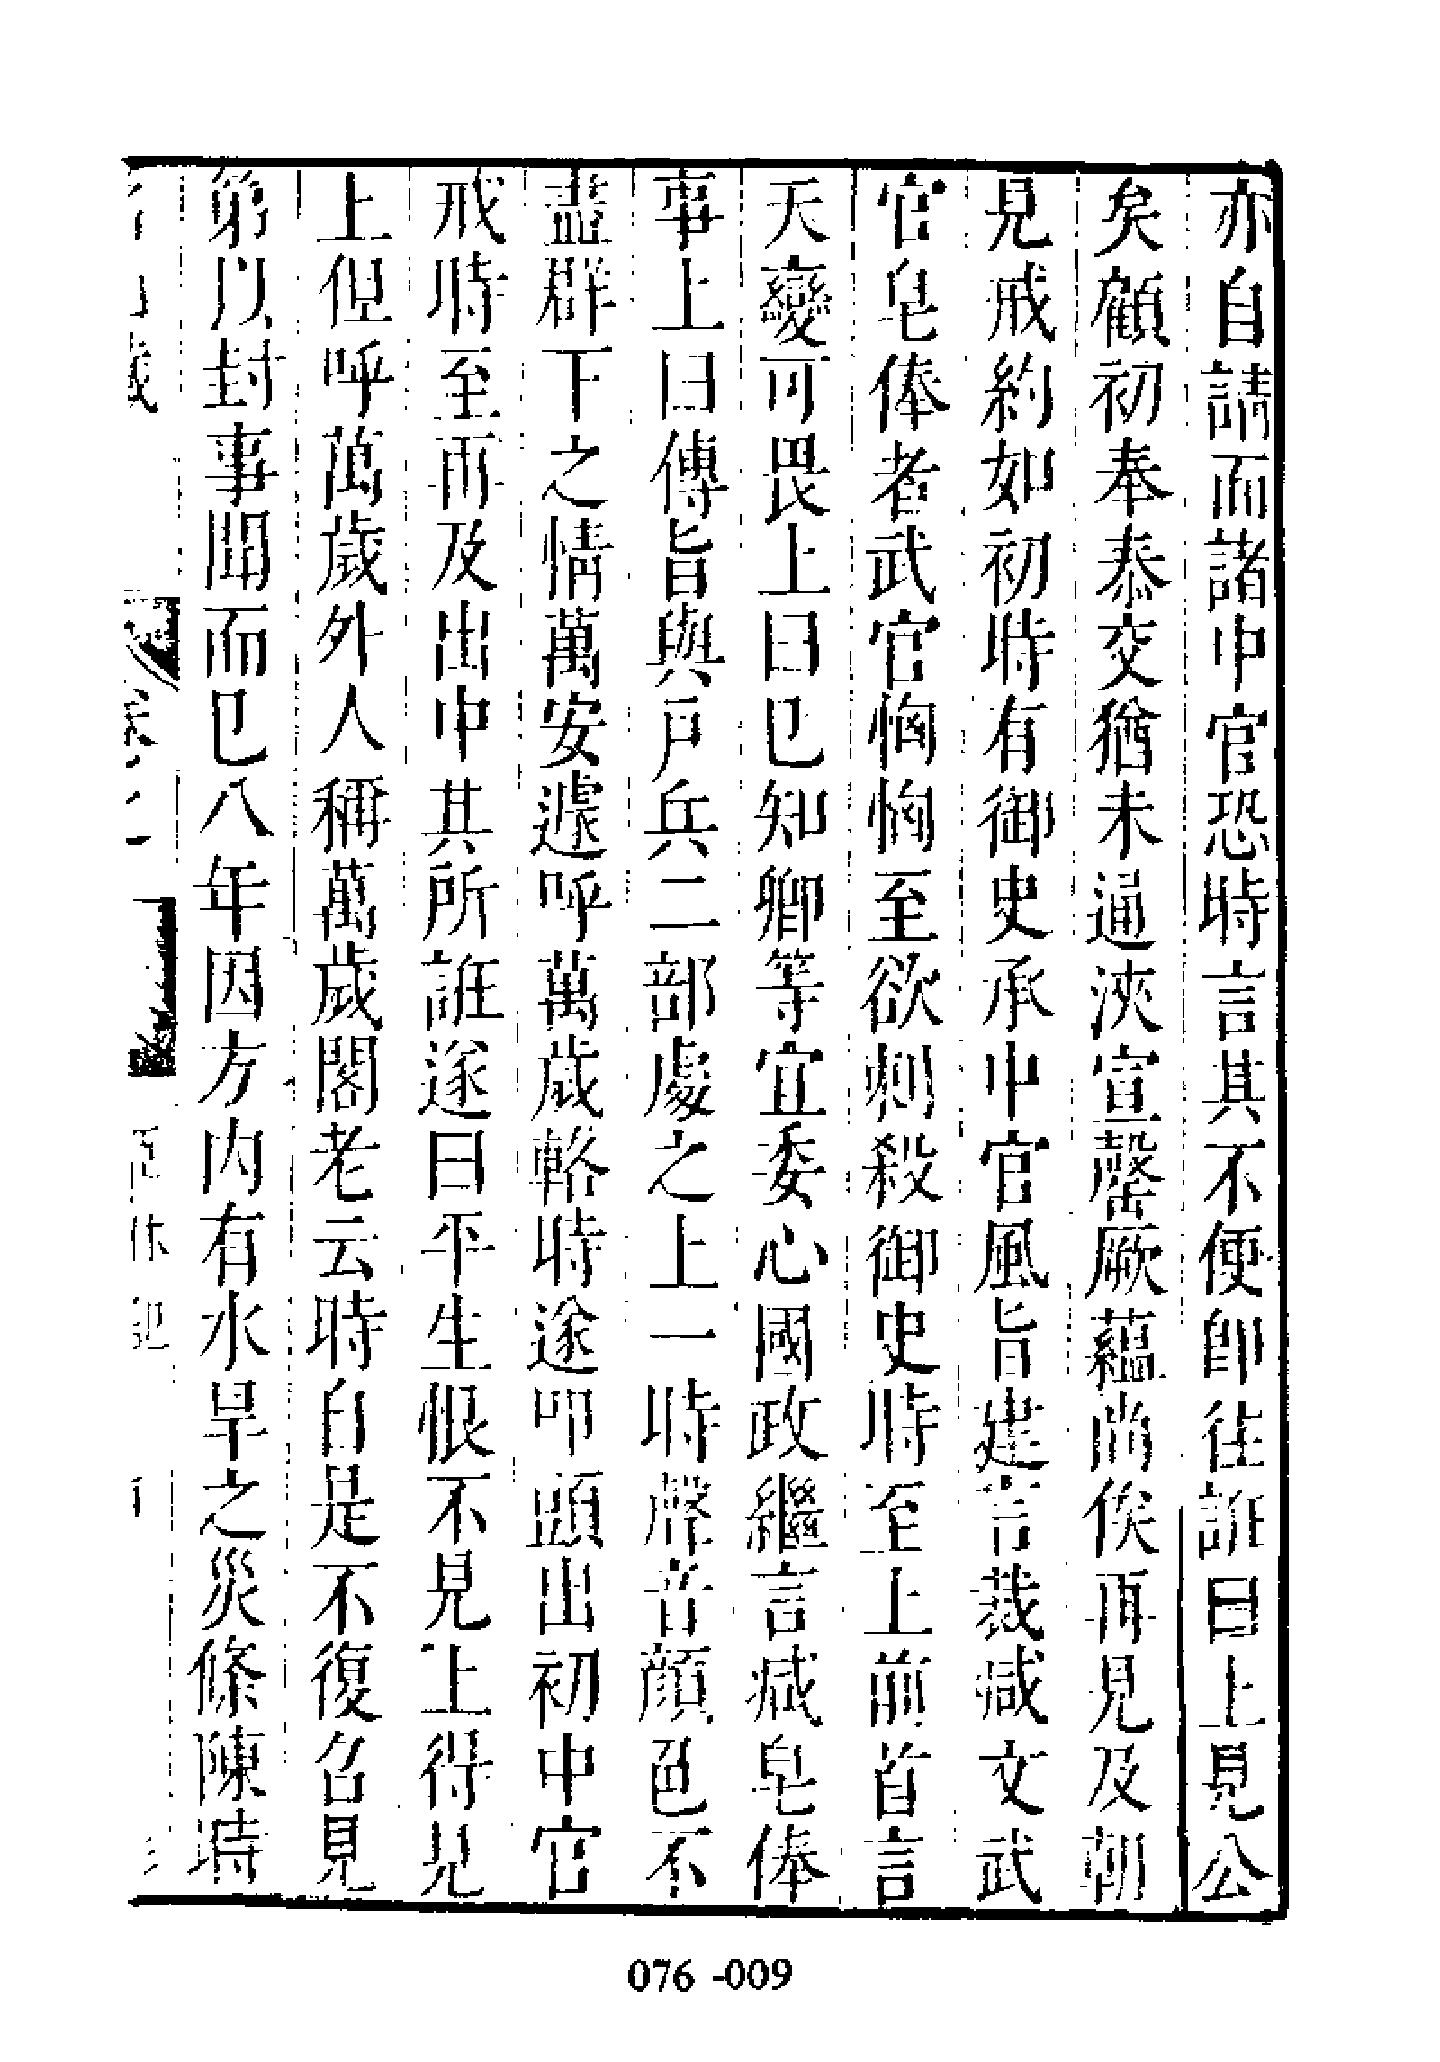 亦自請而諸中官恐時言其不便即往誑曰上見公
矣顧初奉泰交猶未逼浹宣罄厥蘊尚俟再見及朝
見戒約如初時有御史承中官風旨建言裁减文武
官皂俸者武官恟恟至欲刺殺御史時至上前首言
天變可畏上曰已知卿等宜委心國政繼言减皂俸
事上曰傳旨與戶兵二部處之上一時聲音顏色不
盡群下之情萬安遽呼萬歲輅時遂叩頭出初中官
戒時至再及出中其所誑遂曰平生恨不見上得見
上但呼萬歲外人稱萬歲閣老云時自是不復召見
第以封事聞而已八年因方內有水旱之災條陳時
076 -009